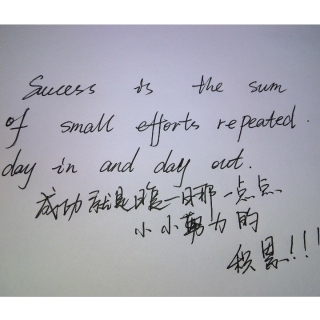 Success is the sum
of small efforts repeated.
day in and day out.
成功就是日复一日那一点点
小小努力的
积累!!!